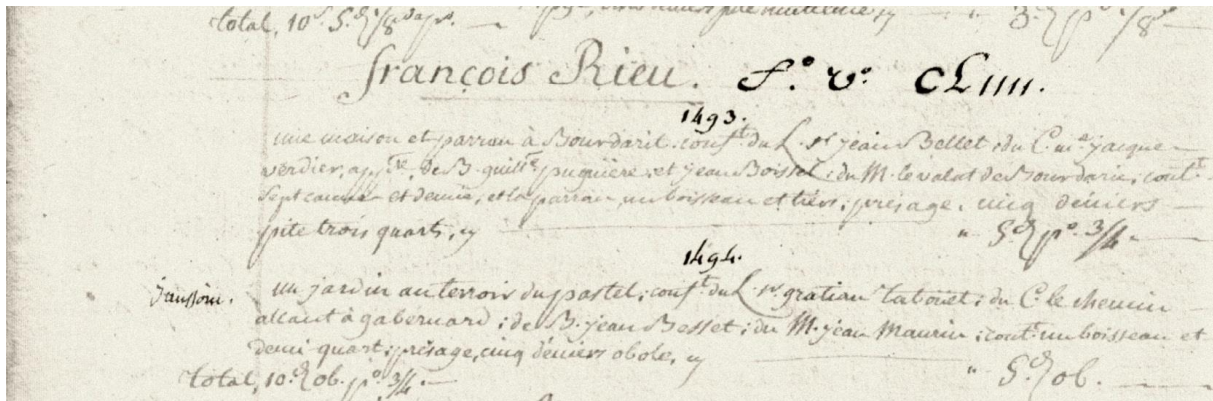 total, 10s 5d 1/8
françois Rieu. f.° v.° cLIIII.
1493.
une maison et parran à Bourdarit. conft du L. sr jean Bellet; du C. me jacques
verdier, de B. guille puguiere, et jean Boissel; du M. le valat de Bourdarie, cont.t
sept cannes et demie; et la parran, un boisseau et tiers; présage, cinq déniers
pite trois quarts, cy 5d po. 3/4.
1494.
un jardin au terroir du pastel; conft du L. sr gratian Taboüet; du C. le chemin
allant à gabernard; de B. jean Besset; du M. jean Maurin; cont. un boisseau et
demi quart; présage, cinq déniers obole, cy 5d ob.
total, 10.d ob. po. 3/4.